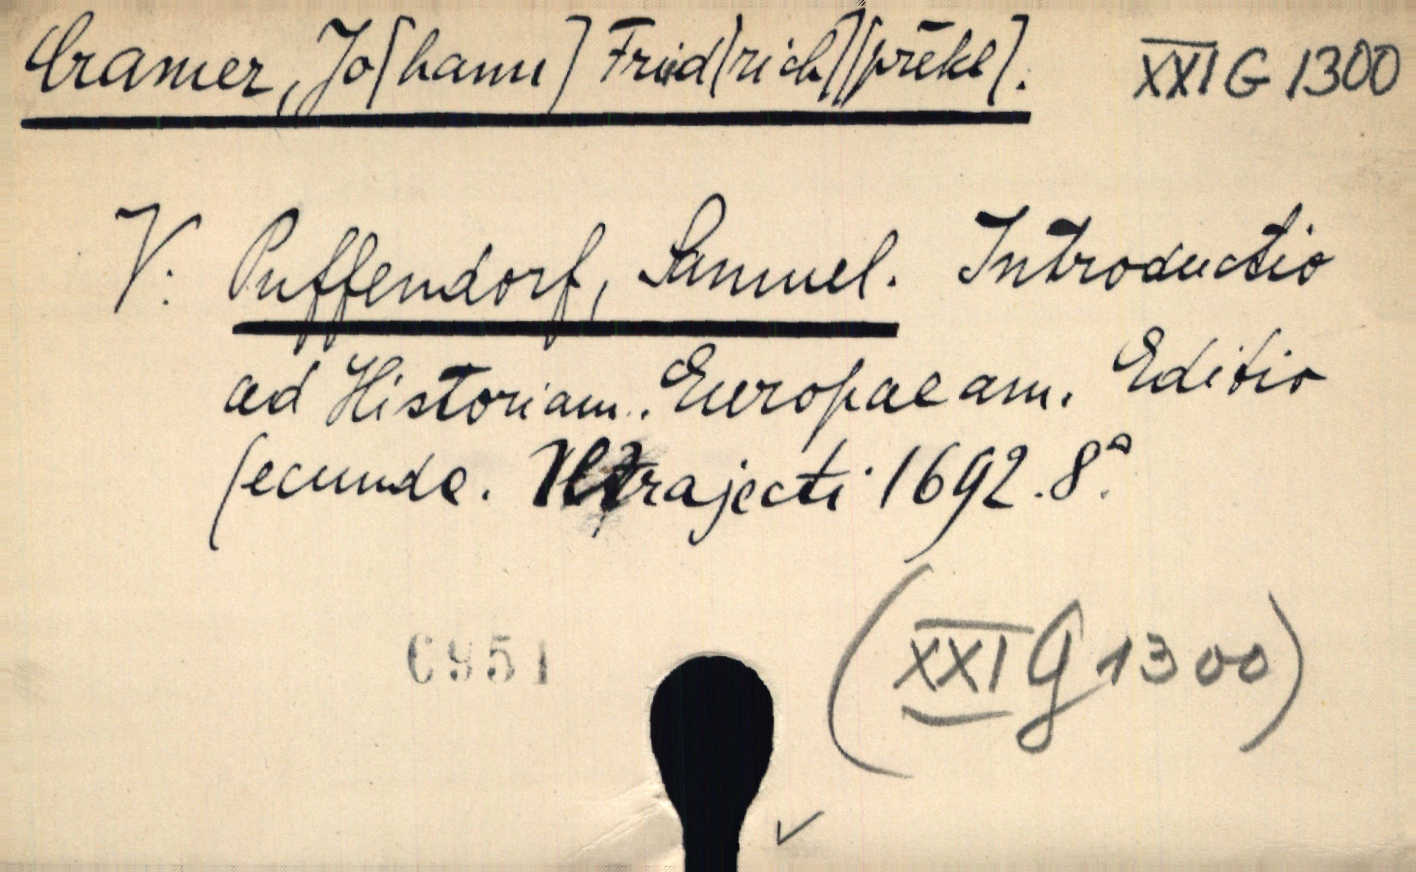 Cramer, Jo[hann] Fried[rich] [překl].
XXI G 1300
V: Puffendorf, Samuel. Introductio
ad Historiam. Europaeam. Editio
secunda. Ultrajecti 1692. 8°.
6951
(XXI G 1300)